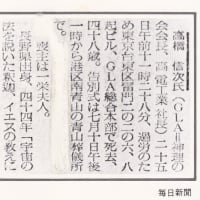 高橋 信次氏(GLA=神理の
会会長、高電工業社長)二十五
日午前十一時二十八分、過労のた
め東京台東区雷門二の一六、八
起ビル、GLA総合本部で死去、
四十八歳。告別式は七月十日午後
一時から港区南青山の青山葬儀所
で。
喪主は一栄夫人。
長野県出身。四十四年「宇宙の
法を説いた釈迦、イエスの教えに
毎日新聞